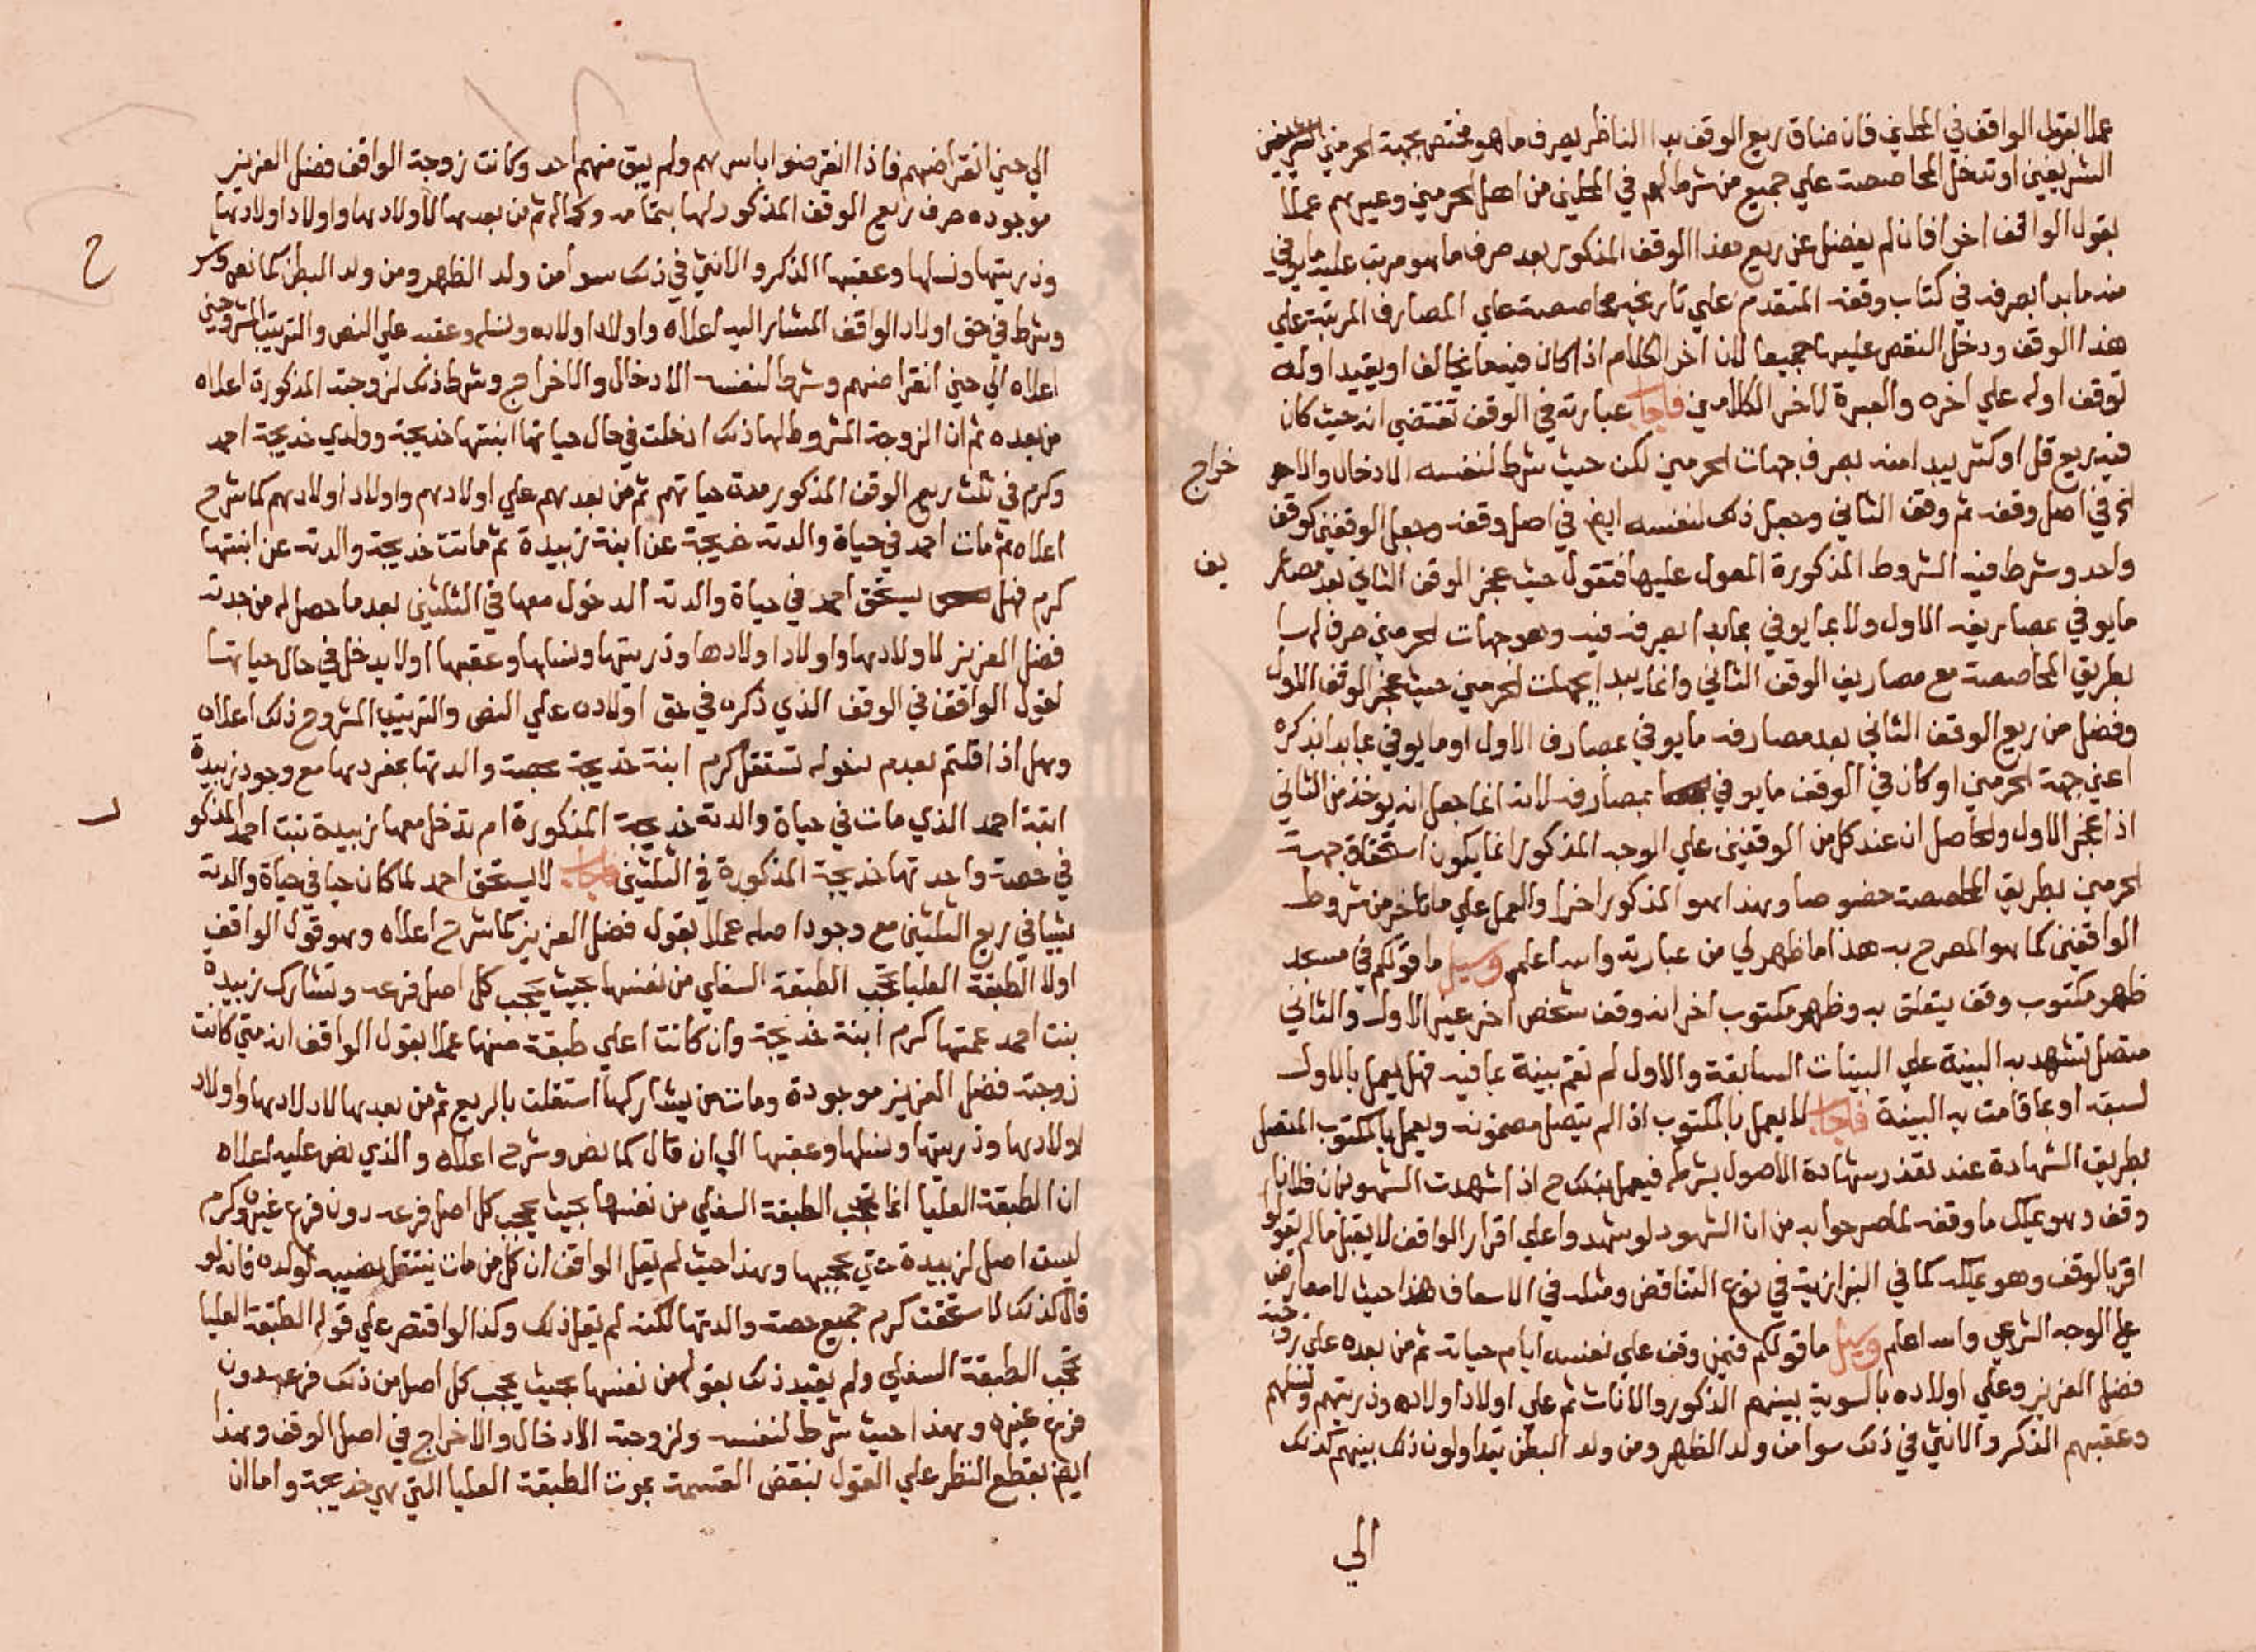 عملا بقول الواقف في المحلين فان ضاق ريع الوقف بدا الناظر بصرف ما هو مختص بجهة الحرمين الشريفين
الشريفين او تدخل المحاصصة علي جميع من شرط لهم في المحلين من اهل الحرمين وغيرهم عملا
بقول الواقف اخرا فان لم يفضل عن ريع هذا الوقف المذكور بعد صرف ما هو مرتب عليه ما يوفي
منه ما بدا بصرفه في كتاب وقفه المتقدم علي تاريخه محاصصة علي المصارف المرتبة علي
هذا الوقف ودخل النقص عليها جميعا لان اخر الكلام اذا كان فيه ما يخالف او يقيد اوله
توقف اوله علي اخره والعبرة لاخر الكلامين فاجاب عبارته في الوقف تقتضي انه حيث كان
فيه ريع قل او كثر يبدا منه بصرف جهات الحرمين لكن حيث شرط لنفسه الادخال والاخراج
في اصل وقفه ثم وقف الثاني وجعل ذلك لنفسه ايضا في اصل وقفه وجعل الوقفين كوقف
واحد وشرط فيه الشروط المذكورة المعول عليها فنقول حيث عجز الوقف الثاني بعد مصاريف
ما يوفي بمصاريف الاول ولا بما يوفي بما بدا بصرفه فيه وهو جهات الحرمين صرف لها
بطريق المحاصصة مع مصاريف الوقف الثاني وانما يبدا بجهات الحرمين حيث عجز الوقف الاول
وفضل من ريع الوقف الثاني بعد مصارفه ما يوفي بمصارف الاول او ما يوفي بما بدا بذكره
اعني جهة الحرمين او كان في الوقف ما يوفي بمصارفه لانه انما جعل انه يوخذ من الثاني
اذا عجز الاول والحاصل ان عند كل من الوقفين علي الوجه المذكور انما يكون استحقاق جهة
الحرمين بطريق المحاصصة خصوصا وهذا هو المذكور اخرا والعمل علي ما تاخر من شروط
الواقفين كما هو المصرح به هذا ما ظهر لي من عبارته والله اعلم وسيل ما قولكم في مسجد
ظهر مكتوب وقف يتعلق به وظهر مكتوب اخر انه وقف شخص اخر غير الاول والثاني
متصل تشهد به البينة علي البينات السابقة والاول لم تقم بينة بما فيه فهل يعمل بالاول
لسبقه او بما قامت به البينة فاجاب لا يعمل بالمكتوب اذا لم يتصل مضمونه ويعمل بالمكتوب المتصل
بطريق الشهادة عند تعذر شهادة الاصول بشرطه فيعمل بذلك ح اذا شهدت الشهود بان فلانا
وقف وهو يملك ما وقفه لما صرحوا به من ان الشهود لو شهدوا علي اقرار الواقف لا يقبل ما لم يقولوا
اقر بالوقف وهو يملكه كما في البزازية في نوع التناقض ومثله في الاسعاف هذا حيث لا معارض
علي الوجه الشرعي والله اعلم وسيل ما قولكم فيمن وقف علي نفسه ايام حياته ثم من بعده علي زوجته
فضل العزيز وعلي اولاده بالسوية بينهم الذكور والاناث ثم علي اولاد اولاده وذريتهم ونسلهم
وعقبهم الذكر والانثي في ذلك سوا من ولد الظهر ومن ولد البطن يتداولون ذلك بينهم كذلك
الي
الي حين انقراضهم فاذا انقرضوا اباسرهم ولم يبق منهم احد وكانت زوجة الواقف فضل العزيز
موجوده صرف ريع الوقف المذكور لها بتمامه وكماله ثم من بعدها لاولادها واولاد اولادها
وذريتها ونسلها وعقبها الذكر والانثي في ذلك سوا من ولد الظهر ومن ولد البطن كما نص وشرح
وشرط في حق اولاد الواقف المشار اليه اعلاه واولاد اولاده ونسله وعقبه علي النص والترتيب المشروحين
اعلاه الي حين انقراضهم وشرط لنفسه الادخال والاخراج وشرط ذلك لزوجته المذكورة اعلاه
من بعده ثم ان الزوجة المشروط لها ذلك ادخلت في حال حياتها ابنتها خديجة وولدي خديجة احمد
وكرم في ثلث ريع الوقف المذكور مدة حياتهم ثم من بعدهم علي اولادهم واولاد اولادهم كما شرح
اعلاه ثم مات احمد في حياة والدته خديجة عن ابنة زبيدة ثم ماتت خديجة والدته عن ابنتها
كرم فهل يستحق احمد في حياة والدته الدخول معها في الثلثين بعد ما حصل له من جدته
فضل العزيز لاولادها واولاد اولادها وذريتها ونسلها وعقبها اولا يدخل في حال حياتها
لقول الواقف في الوقف الذي ذكره في حق اولاده علي النص والترتيب المشروح ذلك اعلاه
وهل اذا قلتم بعدم دخوله تستقل كرم ابنة خديجة بحصة والدتها بمفردها مع وجود زبيدة
ابنة احمد الذي مات في حياة والدته خديجة المذكورة ام تدخل معها زبيدة بنت احمد المذكور
في حصة واحدتها خديجة المذكورة في الثلثين فاجاب لا يستحق احمد لما كان حيا في حياة والدته
شيا في ريع الثلثين مع وجود اصله عملا بقول فضل العزيز كما شرح اعلاه وهو قول الواقف
اولا الطبقة العليا تحجب الطبقة السفلي من نفسها بحيث يحجب كل اصل فرعه وتشارك زبيدة
بنت احمد عمتها كرم ابنة خديجة وان كانت اعلي طبقة منها عملا بقول الواقف انه متي كانت
زوجته فضل العزيز موجودة ومات من يشاركها استقلت بالريع ثم من بعدها لاولادها واولاد
اولادها وذريتها ونسلها وعقبها الي ان قال كما نص وشرح اعلاه والذي نص عليه اعلاه
ان الطبقة العليا انما تحجب الطبقة السفلي من نفسها بحيث يحجب كل اصل فرعه دون فرع غيره وكرم
ليست اصل لزبيدة حتي تحجبها وهذا حيث لم يقل الواقف ان كل من مات ينتقل نصيبه لولده فانه لو
قال كذلك لاستحقت كرم جميع حصة والدتها لكنه لم يقل ذلك وكذا لو اقتصر علي قوله الطبقة العليا
تحجب الطبقة السفلي ولم يقيد ذلك بقوله من نفسها بحيث يحجب كل اصل من ذلك فرعه دون
فرع غيره وهذا حيث شرط لنفسه ولزوجته الادخال والاخراج في اصل الوقف وهذا
ايضا بقطع النظر علي القول بنقض القسمة بموت الطبقة العليا التي هي خديجة واما ان